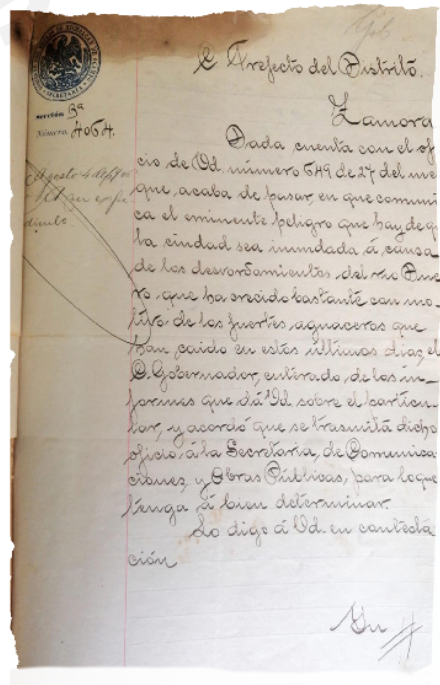 SECRETARÍA
sección 3ª
Número 4064.
Agosto 4 de 190
A su expe
diente.
C. Prefecto del Distritó.
Zamora
Dada cuenta con el ofi
cio de Vd. número 649 de 27 del me
que, acaba de pasar, en que comuni
ca el eminente peligro que hay de q
la ciudad sea inundada á causa
de los desvordamientos del rio Due
ro, que ha crecido bastante con mo-
tivo de los fuertes aguaceros que
han caido en estos últimos dias, el
C. Gobernador, enterado, de los in-
formes que dá Vd sobre el particu-
lar, y acordó que se trasmita dicho
oficio, á la Secretaria, de Comunica-
ciones, y Obras Públicas, para lo que
tenga á bien determinar.
Lo digo á Vd. en contesta
ción